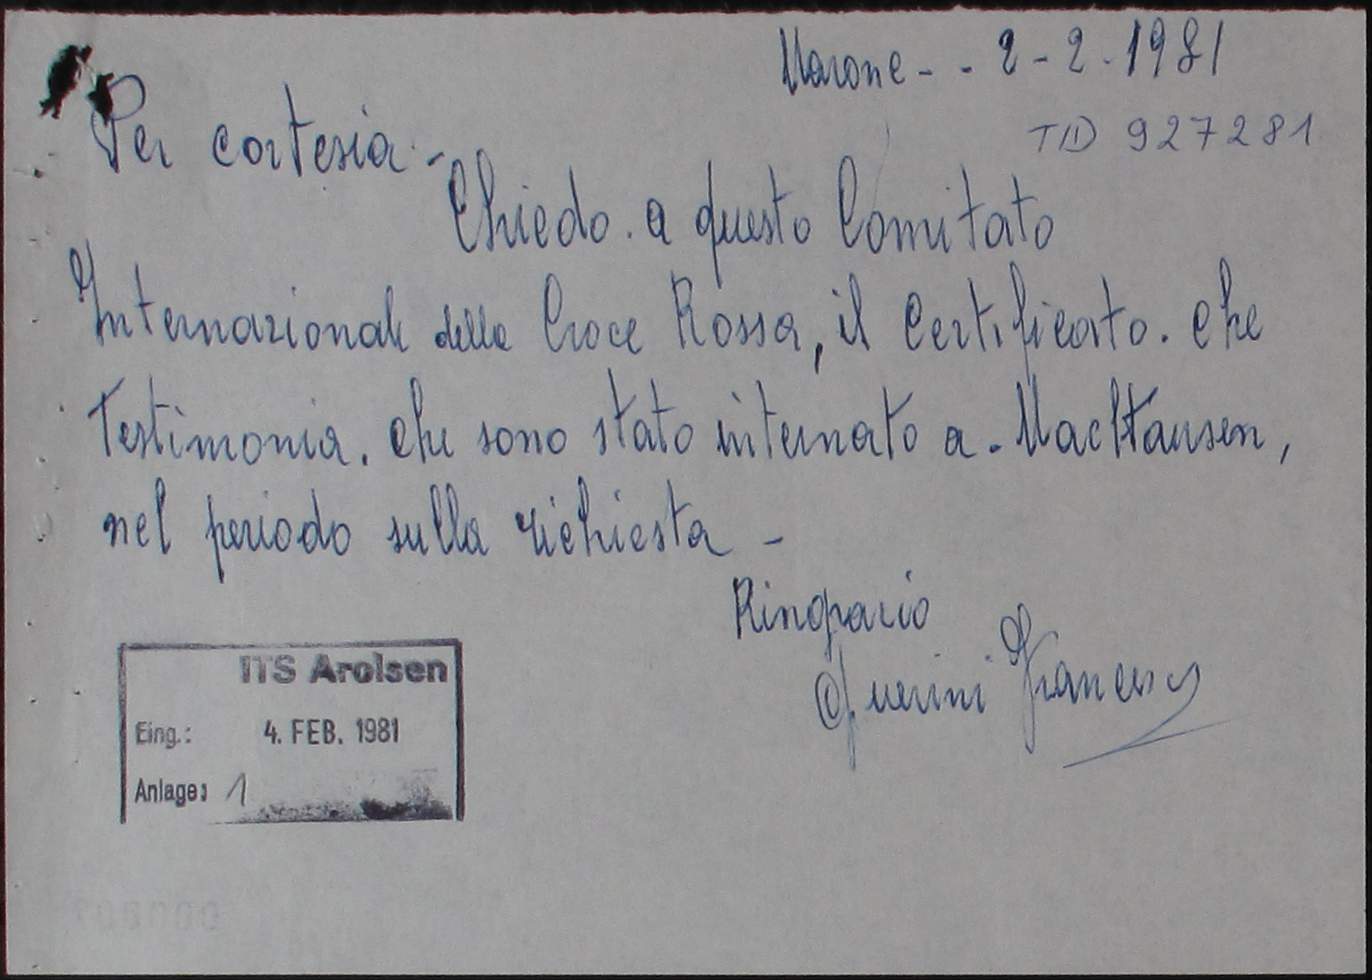 Marone - - 2 - 2 - 1981
TID 927281
Per cortesia. -
Chiedo. a questo Comitato
Internazionale della Croce Rossa, il Certificato. che
Testimonia. che sono stato internato a. Macthausen,
nel periodo sulla richiesta -
Ringrazio
Querini Francesco
ITS Arolsen
Eing.: 4. FEB. 1981
Anlage: 1